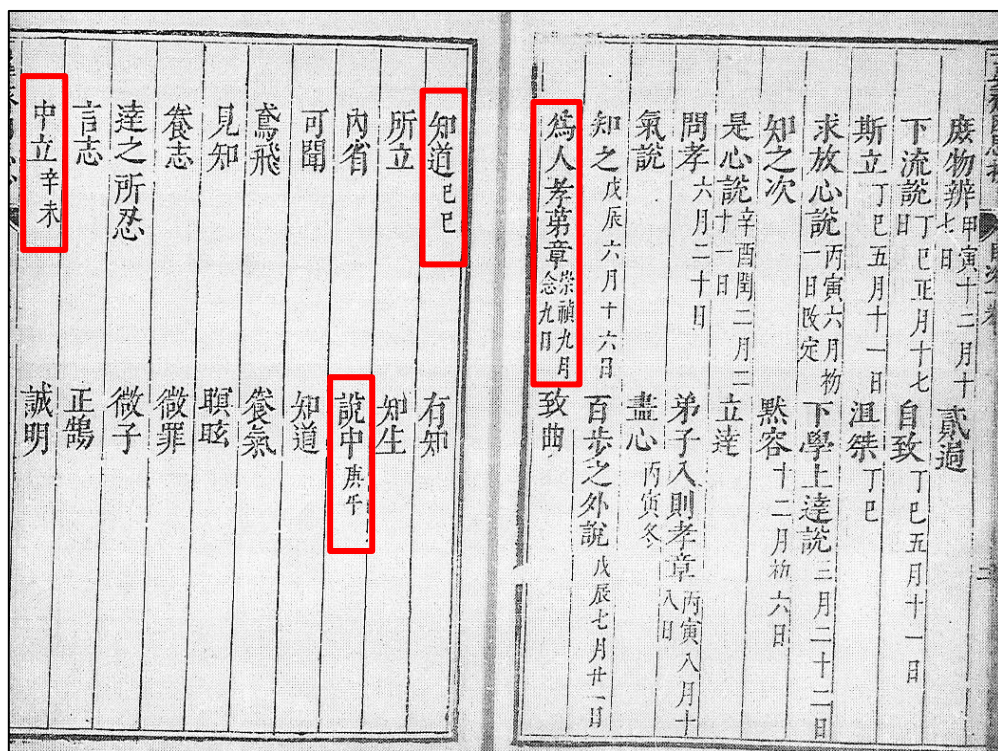 庶物辨 甲寅十二月十七日 貳過
下流說 丁巳正月十七日 自致 丁巳五月十一日
斯立 丁巳五月十一日 沮桀 丁巳
求放心說 丙寅六月初一日改定 下學上達說 三月二十二日
知之次 默容 十二月初六日
是心說 辛酉閏二月二十一日 立達
問孝 六月二十日 弟子入則孝章 丙寅八月十八日
氣說 盡心 丙寅冬
知之 戊辰六月十六日 百步之外說 戊辰七月廿一日
爲人孝弟章 崇禎九月念九日 致曲
知道 己巳 有知
所立 知生
內省 說中 庚午
可聞 知道
鳶飛 養氣
見知 瞑眩
養志 微罪
達之所忍 微子
言志 正鵠
中立 辛未 誠明